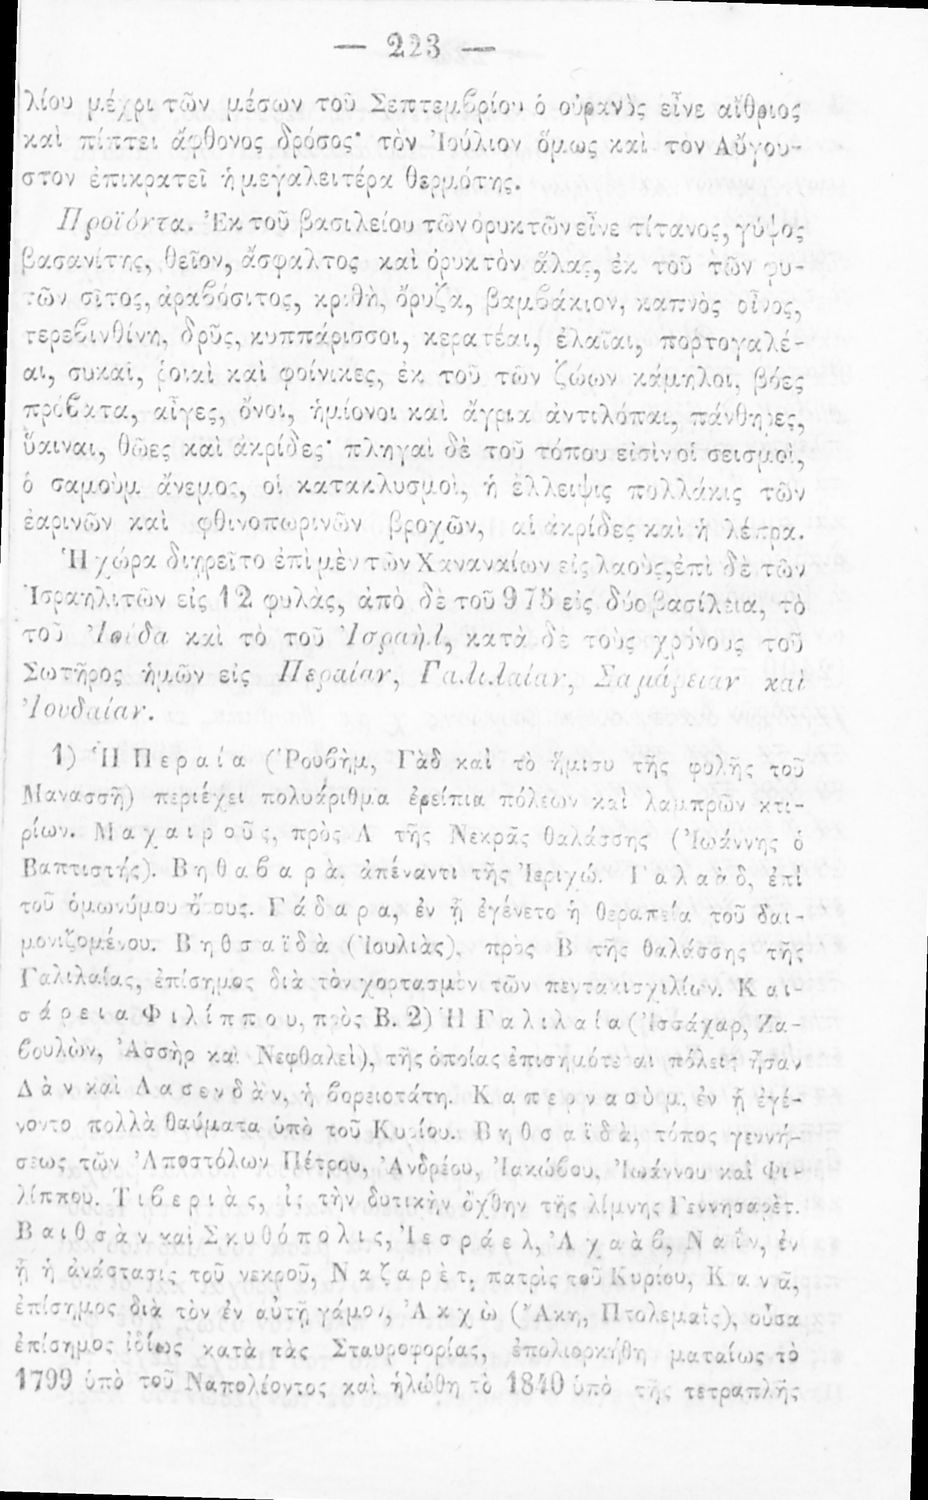 — 223 —
λίου μέχρι τῶν μέσων τοῦ Σεπτεμβρίου ὁ οὐρανὸς εἶνε αἴθριος
καὶ πίπτει ἄφθονος δρόσος· τὸν Ἰούλιον ὅμως καὶ τὸν Αὔγου-
στον ἐπικρατεῖ ἡ μεγαλειτέρα θερμότης.
Προϊόντα. Ἐκ τοῦ βασιλείου τῶν ὀρυκτῶν εἶνε τίτανος, γύψος
βασανίτης, θεῖον, ἄσφαλτος καὶ ὀρυκτὸν ἅλας, ἐκ τοῦ τῶν φυ-
τῶν σῖτος, ἀραβόσιτος, κριθὴ, ὄρυζα, βαμβάκιον, καπνὸς οἶνος,
τερεβινθίνη, δρῦς, κυππάρισσοι, κερατέαι, ἐλαῖαι, πορτογαλέ-
αι, συκαῖ, ῥοιαὶ καὶ φοίνικες, ἐκ τοῦ τῶν ζώων κάμηλοι, βόες
πρόβατα, αἶγες, ὄνοι, ἡμίονοι καὶ ἄγρια ἀντιλόπαι, πάνθηρες,
ὕαιναι, θῶες καὶ ἀκρίδες· πληγαὶ δὲ τοῦ τόπου εἰσὶν οἱ σεισμοὶ,
ὁ σαμοὺμ ἄνεμος, οἱ κατακλυσμοὶ, ἡ ἔλλειψις πολλάκις τῶν
ἐαρινῶν καὶ φθινοπωρινῶν βροχῶν, αἱ ἀκρίδες καὶ ἡ λέπρα.
Ἡ χώρα διῃρεῖτο ἐπὶ μὲν τῶν Χαναναίων εἰς λαοὺς, ἐπὶ δὲ τῶν
Ἰσραηλιτῶν εἰς 12 φυλὰς, ἀπὸ δὲ τοῦ 975 εἰς δύο βασίλεια, τὸ
τοῦ Ἰούδα καὶ τὸ τοῦ Ἰσραὴλ, κατὰ δὲ τοὺς χρόνους τοῦ
Σωτῆρος ἡμῶν εἰς Περαίαν, Γαλιλαίαν, Σαμάρειαν καὶ
Ἰουδαίαν.
1) Ἡ Περαία (Ῥουβὴμ, Γὰδ καὶ τὸ ἥμισυ τῆς φυλῆς τοῦ
Μανασσῆ) περιέχει πολυάριθμα ἐρείπια πόλεων καὶ λαμπρῶν κτι-
ρίων. Μαχαιροῦς, πρὸς Α τῆς Νεκρᾶς θαλάσσης (Ἰωάννης ὁ
Βαπτιστής). Βηθαβαρὰ, ἀπέναντι τῆς Ἱεριχώ. Γαλαὰδ, ἐπὶ
τοῦ ὁμωνύμου ὄρους. Γάδαρα, ἐν ᾗ ἐγένετο ἡ θεραπεία τοῦ δαι-
μονιζομένου. Βηθσαϊδὰ (Ἰουλιὰς), πρὸς Β τῆς θαλάσσης τῆς
Γαλιλαίας, ἐπίσημος διὰ τὸν χορτασμὸν τῶν πεντακισχιλίων. Και-
σάρεια Φιλίππου, πρὸς Β. 2) Ἡ Γαλιλαία (Ἰσσάχαρ, Ζα-
βουλὼν, Ἀσσὴρ καὶ Νεφθαλεὶ), τῆς ὁποίας ἐπισημότεραι πόλεις ἦσαν
Δὰν καὶ Λασενδὰν, ἡ βορειοτάτη. Καπερναοὺμ, ἐν ᾗ ἐγέ-
νοντο πολλὰ θαύματα ὑπὸ τοῦ Κυρίου. Βηθσαϊδὰ, τόπος γεννή-
σεως τῶν Ἀποστόλων Πέτρου, Ἀνδρέου, Ἰακώβου, Ἰωάννου καὶ Φι-
λίππου. Τιβεριὰς, εἰς τὴν δυτικὴν ὄχθην τῆς λίμνης Γεννησαρέτ.
Βαιθσὰν καὶ Σκυθόπολις, Ἰεσράελ, Ἀχαὰβ, Ναῒν, ἐν
ᾗ ἡ ἀνάστασις τοῦ νεκροῦ, Ναζαρὲτ, πατρὶς τοῦ Κυρίου, Κανᾶ,
ἐπίσημος διὰ τὸν ἐν αὐτῇ γάμον, Ἀκχὼ (Ἄκη, Πτολεμαῒς), οὖσα
ἐπίσημος ἰδίως κατὰ τὰς Σταυροφορίας, ἐπολιορκήθη ματαίως τὸ
1799 ὑπὸ τοῦ Ναπολέοντος καὶ ἡλώθη τὸ 1840 ὑπὸ τῆς τετραπλῆς